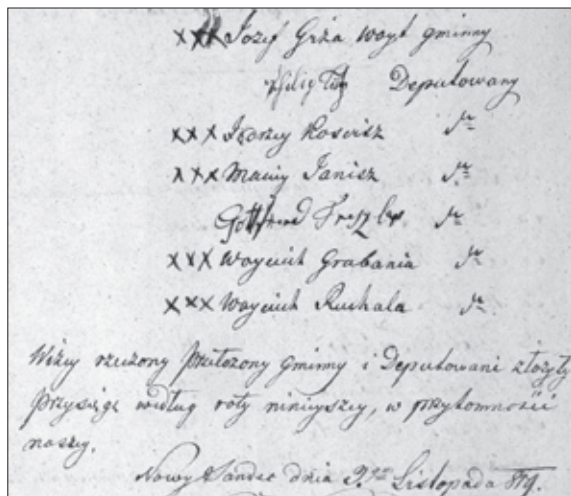 xxx Jozef Gryźa woyt gminny
Deputowany
xxx Jędrzey Kościsz dto
xxx Maciy Janisz dto
Gottfried dto
xxx Woyciech Grabania dto
xxx Woyciech Ruchala dto
Wyżey rzeczony Przełożony gminny i Deputowani złożyły
Przysięgę według roty ninieyszey, w przytomności
naszey.
Nowy Sandec dnia 9go Listopada 819.